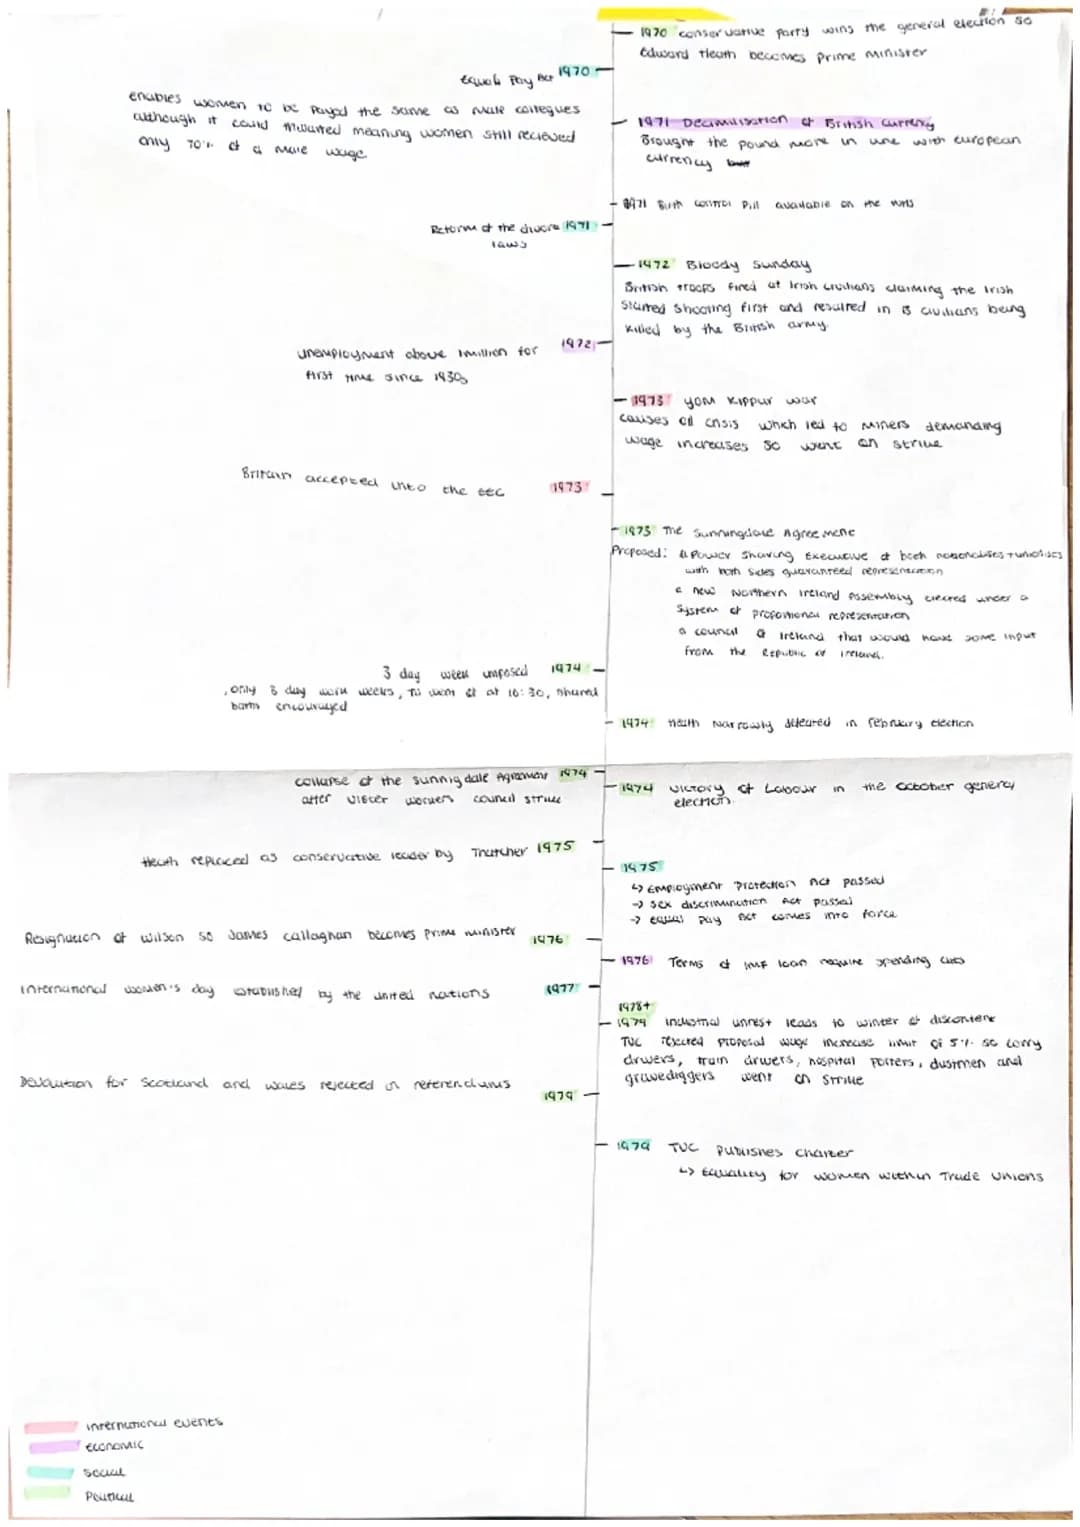 1970 conservative party wins the general election so
Edward Heath becomes prime minister
Equal Pay Act 1970
enables women to be payed the same as male collegues
although it could thwarted meaning women still recieved
only 70% of a male wage
1971 Decimilisation of British currency
Brought the pound more in line with european
currency
1971 Birth control pill available on the NHS
Reform of the divorce 1971
laws
1972 Bloody Sunday
British troops fired at Irish civilians claiming the Irish
started shooting first and resulted in 13 civilians being
killed by the British army.
1972
unemployment above 1 million for
first time since 1930s
1973 Yom Kippur war
causes oil crisis which led to miners demanding
wage increases so went on strike
Britain accepted into the EEC 1973
1973 The Sunningdale Agreement
Proposed: a power sharing executive of both nationalists + unionists
with both sides guaranteed representation
a new Northern Ireland Assembly elected under a
system of proportional representation
a council of Ireland that would have some input
from the Republic of Ireland.
3 day week imposed 1974
only 3 day work weeks, TV went off at 10:30, shared
baths encouraged
1974 Heath narrowly defeated in february election
collapse of the sunnigdale Agreement 1974
after Ulster workers council strike
1974 victory of Labour in the October general
election.
Heath replaced as conservative leader by Thatcher 1975
1975
↳ Employment Protection Act passed
→ sex discrimination Act passed
→ equal pay act comes into force
Resignation of Wilson so James Callaghan becomes prime minister 1976
1976 Terms of IMF loan require spending cuts
International women's day established by the united nations 1977
1978+
1979 industrial unrest leads to winter of discontent
TUC rejected proposal wage increase limit of 5% so lorry
drivers, train drivers, hospital porters, dustmen and
gravediggers went on strike
Devolution for Scotland and wales rejected in referendums
1979
1979 TUC Publishes charter
↳ Equality for women within Trade Unions
international events
economic
social
Political